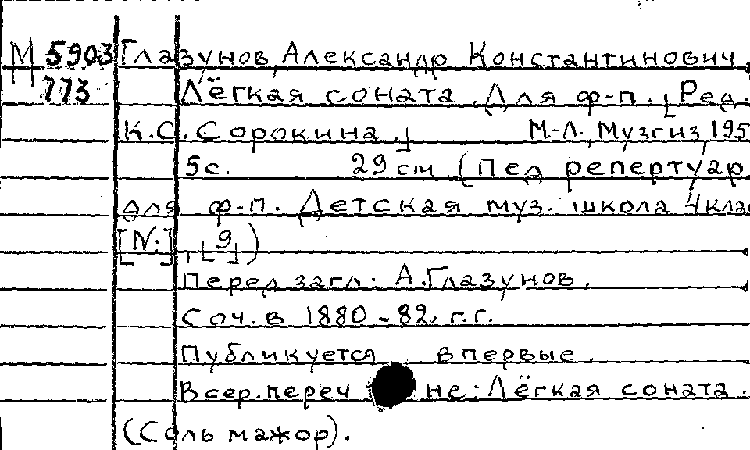 М 5903 Глазунов, Александр Константинович.
773 Лёгкая соната. Для ф-п. [Ред.
К.С. Сорокина.] М-Л., Музгиз, 195
5с. 29 см (Пед репертуар
для ф-п. Детская муз. школа 4 клас
[N.], [9])
Перед загл.: А. Глазунов.
Соч. в 1880-82. г.г.
Публикуется впервые.
В сер. переч не: Лёгкая соната.
(Соль мажор).